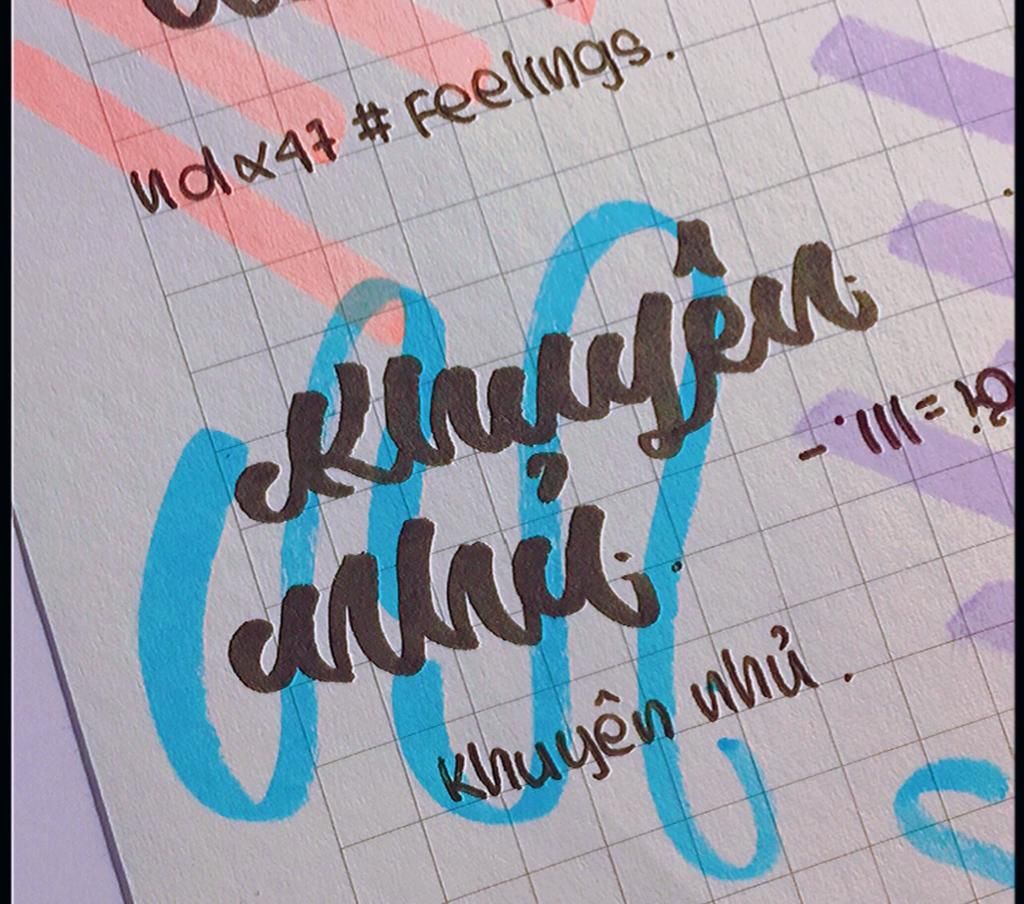 ndx47 # Feelings.
Khuyên
nhủ.
Khuyên nhủ.